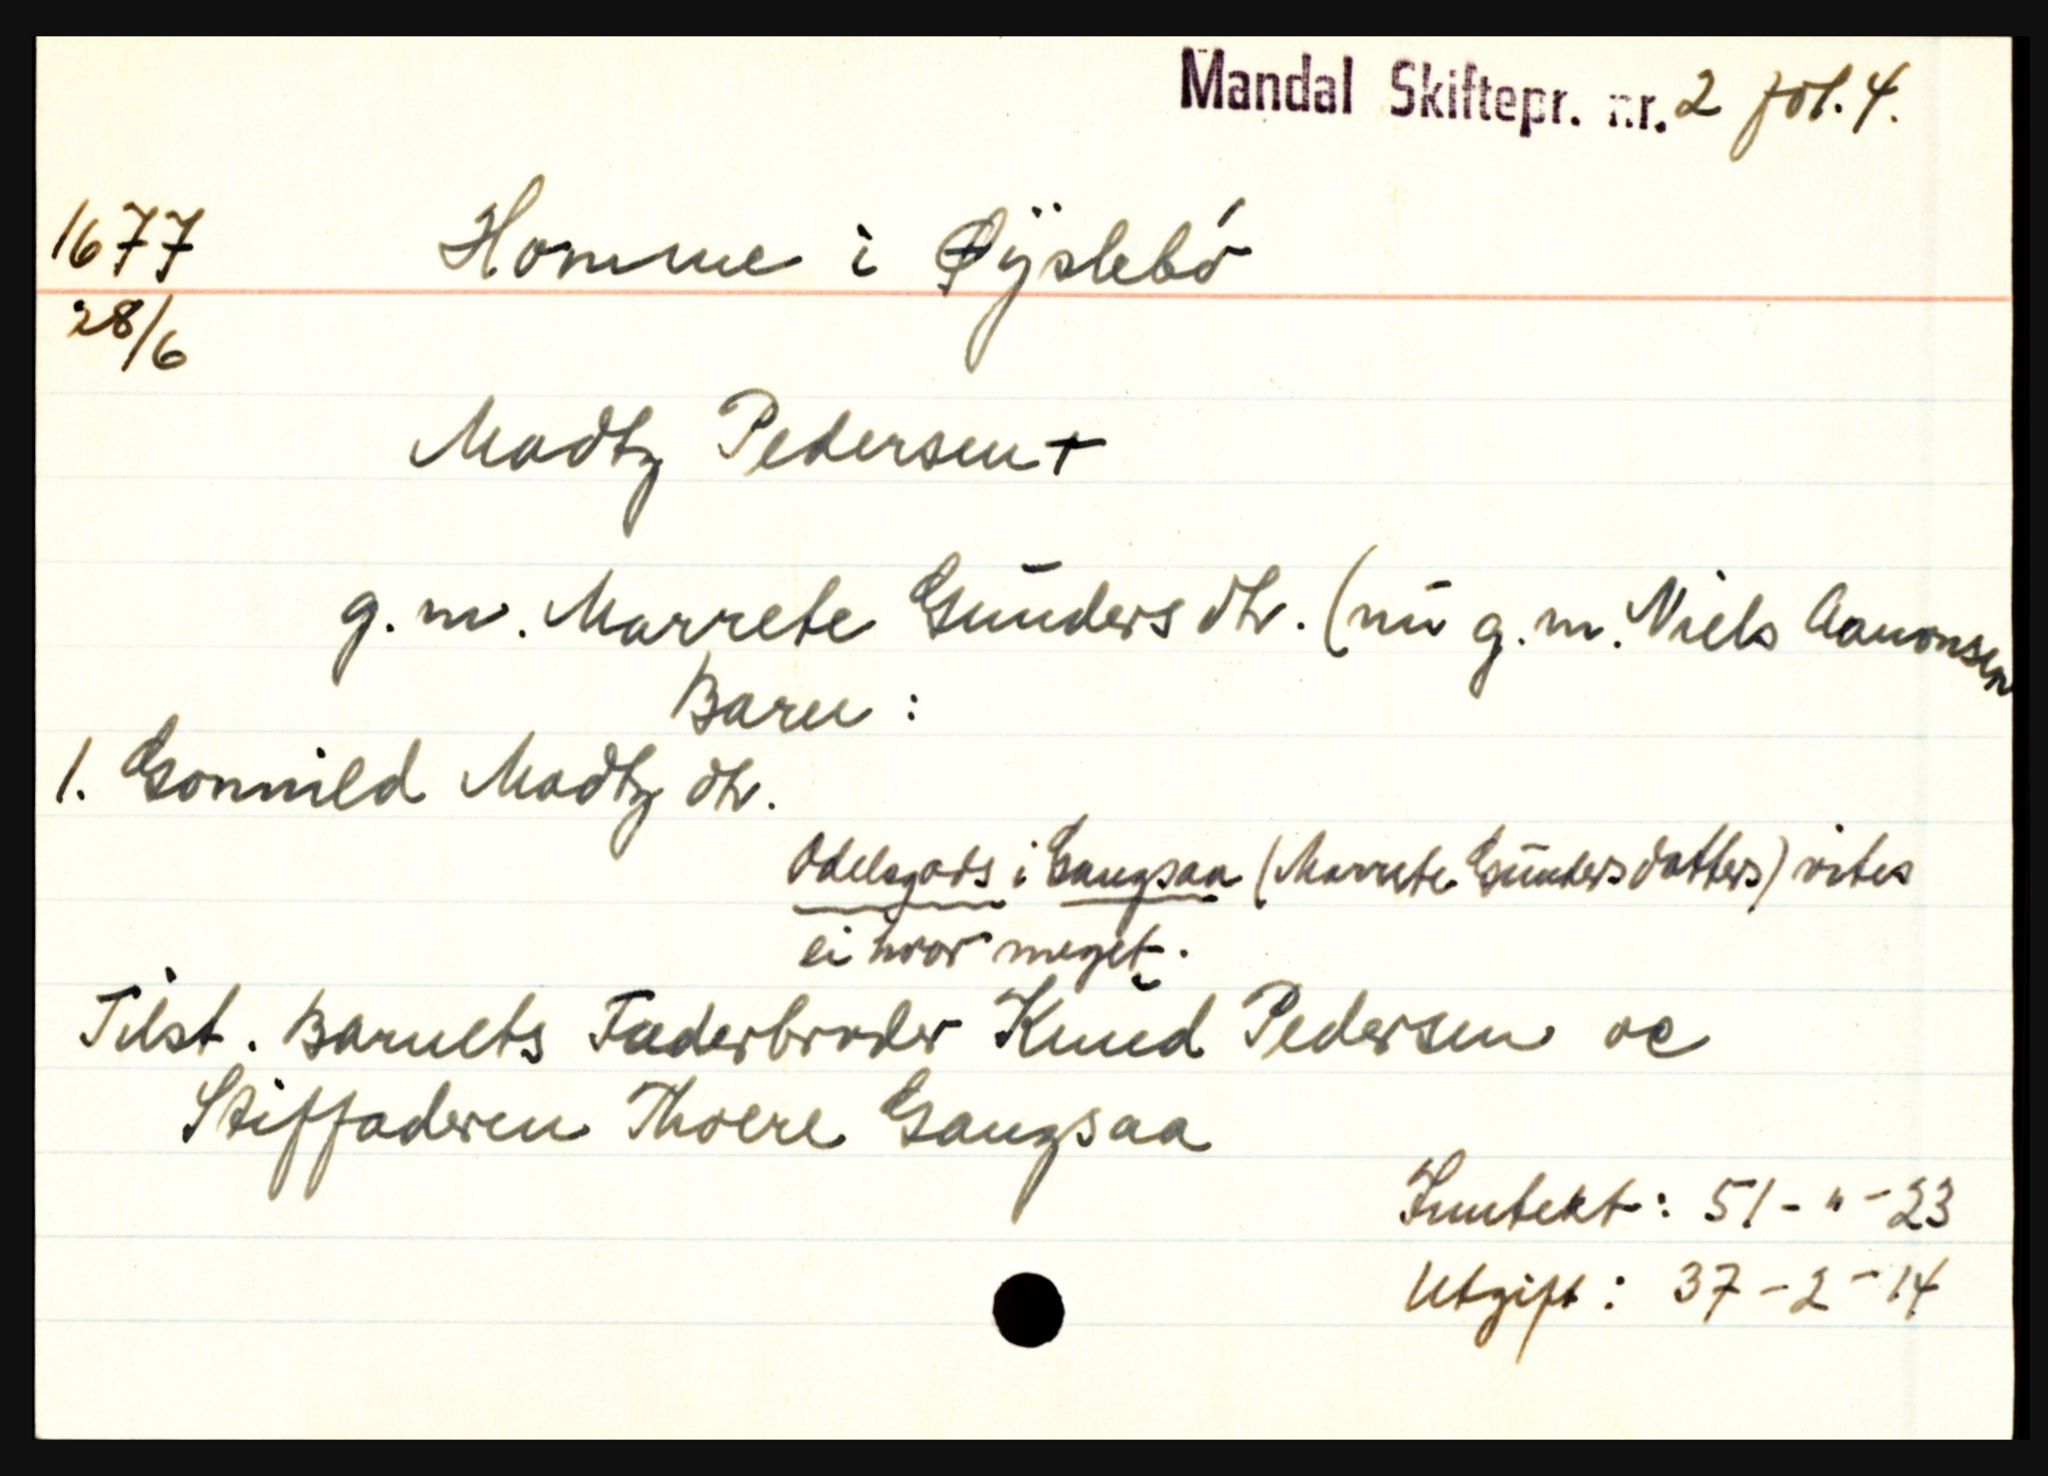 Mandal Skiftepr. nr. 2 fol. 4.
1677 Homme i Øÿslebó
28/6
Madtz Pedersen +
g. m. Marrete Gŭnders dtr. (nŭ g. m. Niels Aanonsen
Barn :
1. Gonnild Madtz dtr.
Odelsgods i Gangsaa (Marrete Gŭndersdatters) vites
ei hvor meget.
Tilst. Barnets Faderbroder Knŭd Pedersen oc
Stiffaderen Thoere Gangsaa
Inntekt : 51 - " - 23
Utgift : 37 - 2 - 14